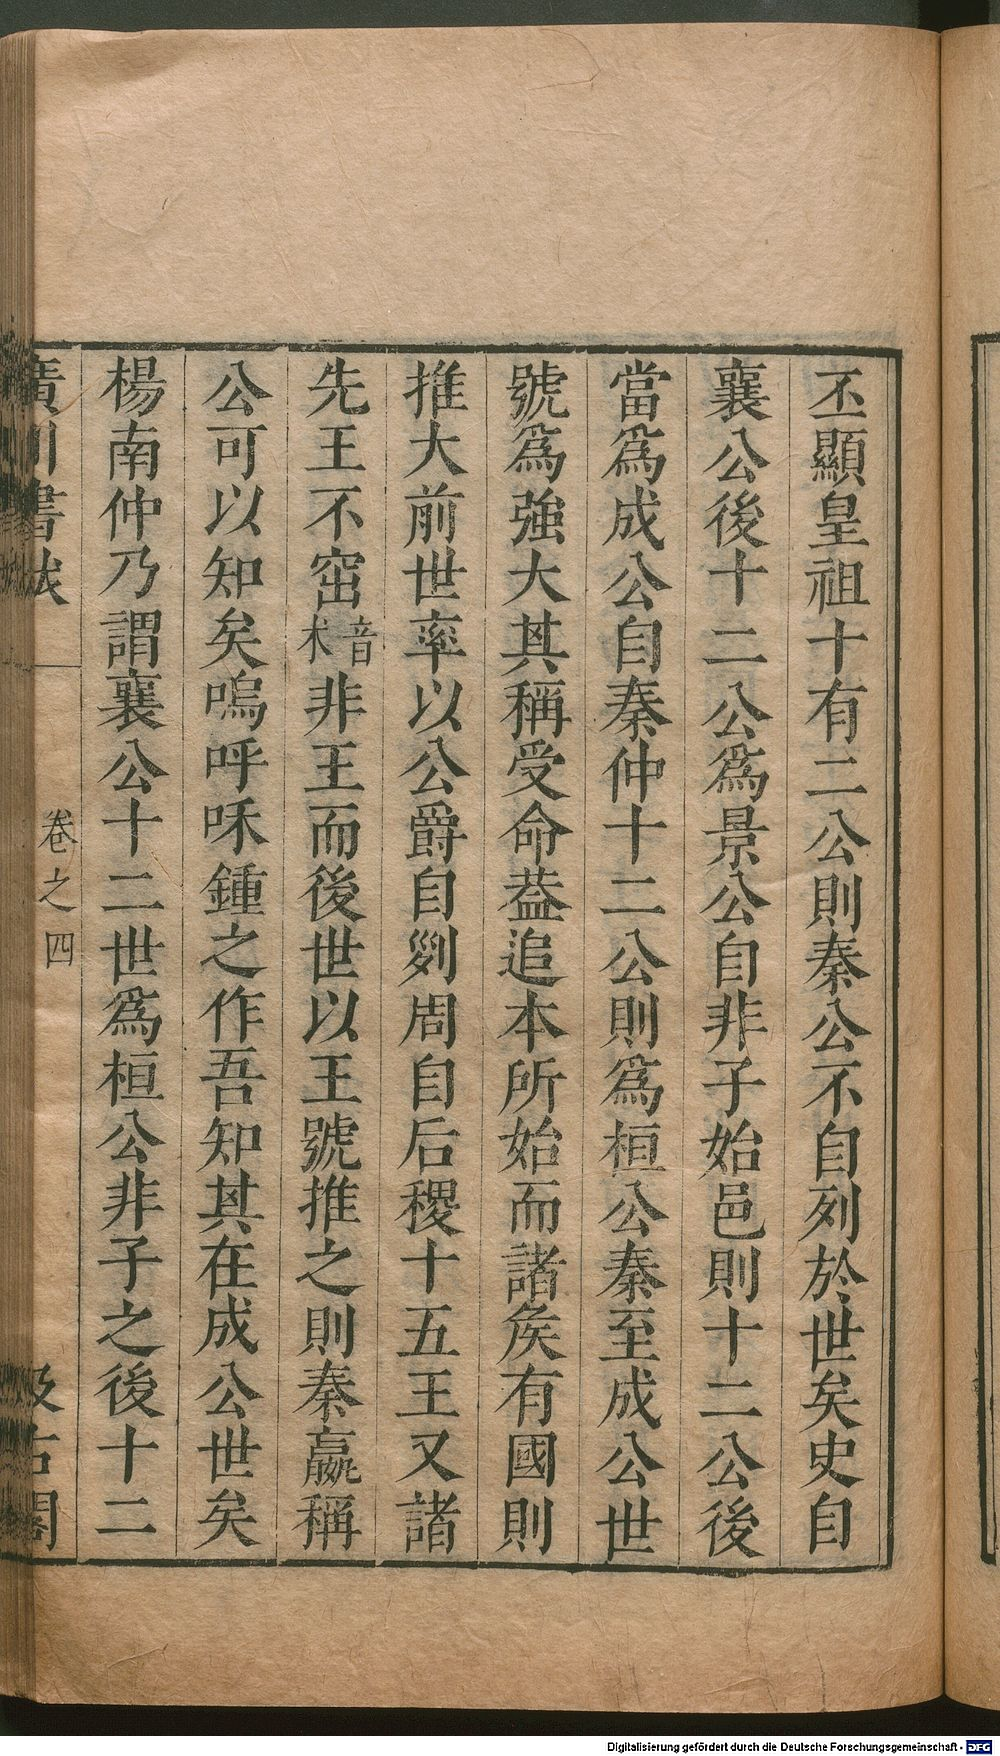 丕顯皇祖十有二公則秦公不自列於世矣史自
襄公後十二公爲景公自非子始邑則十二公後
當爲成公自秦仲十二公則爲桓公秦至成公世
號爲強大其稱受命葢追本所始而諸矦有國則
推大前世率以公爵自剡周自后稷十五王又諸
先王不窋音术非王而後世以王號推之則秦嬴稱
公可以知矣嗚呼呠鍾之作吾知其在成公世矣
楊南仲乃謂襄公十二世爲桓公非子之後十二
廣川書跋 卷之四 汲古閣
Digitalisierung gefördert durch die Deutsche Forschungsgemeinschaft - DFG